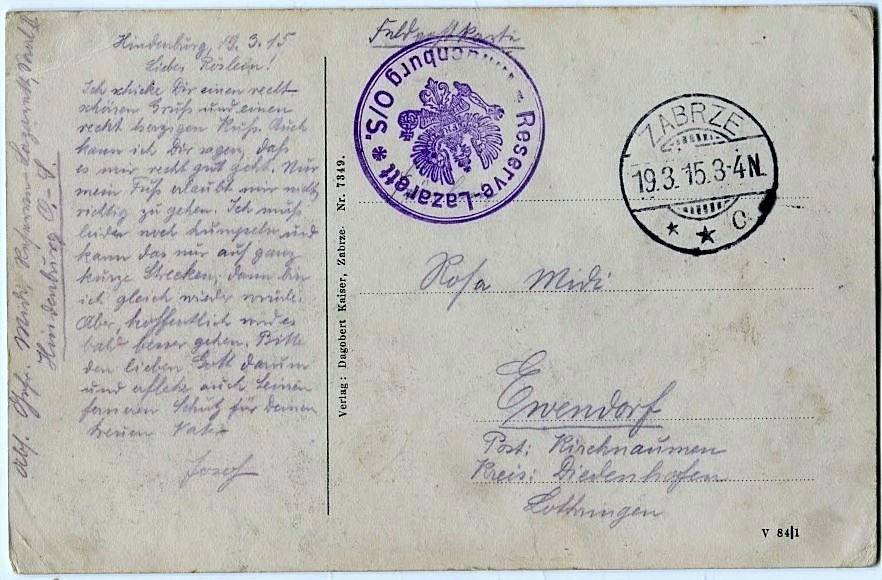 Feldpostkarte
Hindenburg, 19.3.15
Liebes Röslein!
Ich schicke Dir einen recht
schönen Gruß und einen
recht herzigen Kuß. Auch
kann ich Dir sagen, daß
es mir recht gut geht. Nur
mein Fuß erlaubt mir nicht
richtig zu gehen. Ich muß
leider noch humpeln und
kann das nur auf ganz
kurze Strecken; dann bin
ich gleich wieder müde.
Aber, hoffentlich wird es
bald besser gehen. Bitte
den lieben Gott darum
und erflehe auch seinen
ferneren Schutz für Deinen
treuen Vater
Josef
Abs. Gefr. Midi, Reserve-Lazarett,
Hindenburg O.-S.
Verlag: Dagobert Kaiser, Zabrze. Nr. 7349.
* Reserve-Lazarett * Hindenburg O/S.
ZABRZE
19.3.15.3-4N.
* * c
Rosa Midi
Ewendorf
Post: Kirchnaumen
Kreis: Diedenhofen
Lothringen
V 84|1